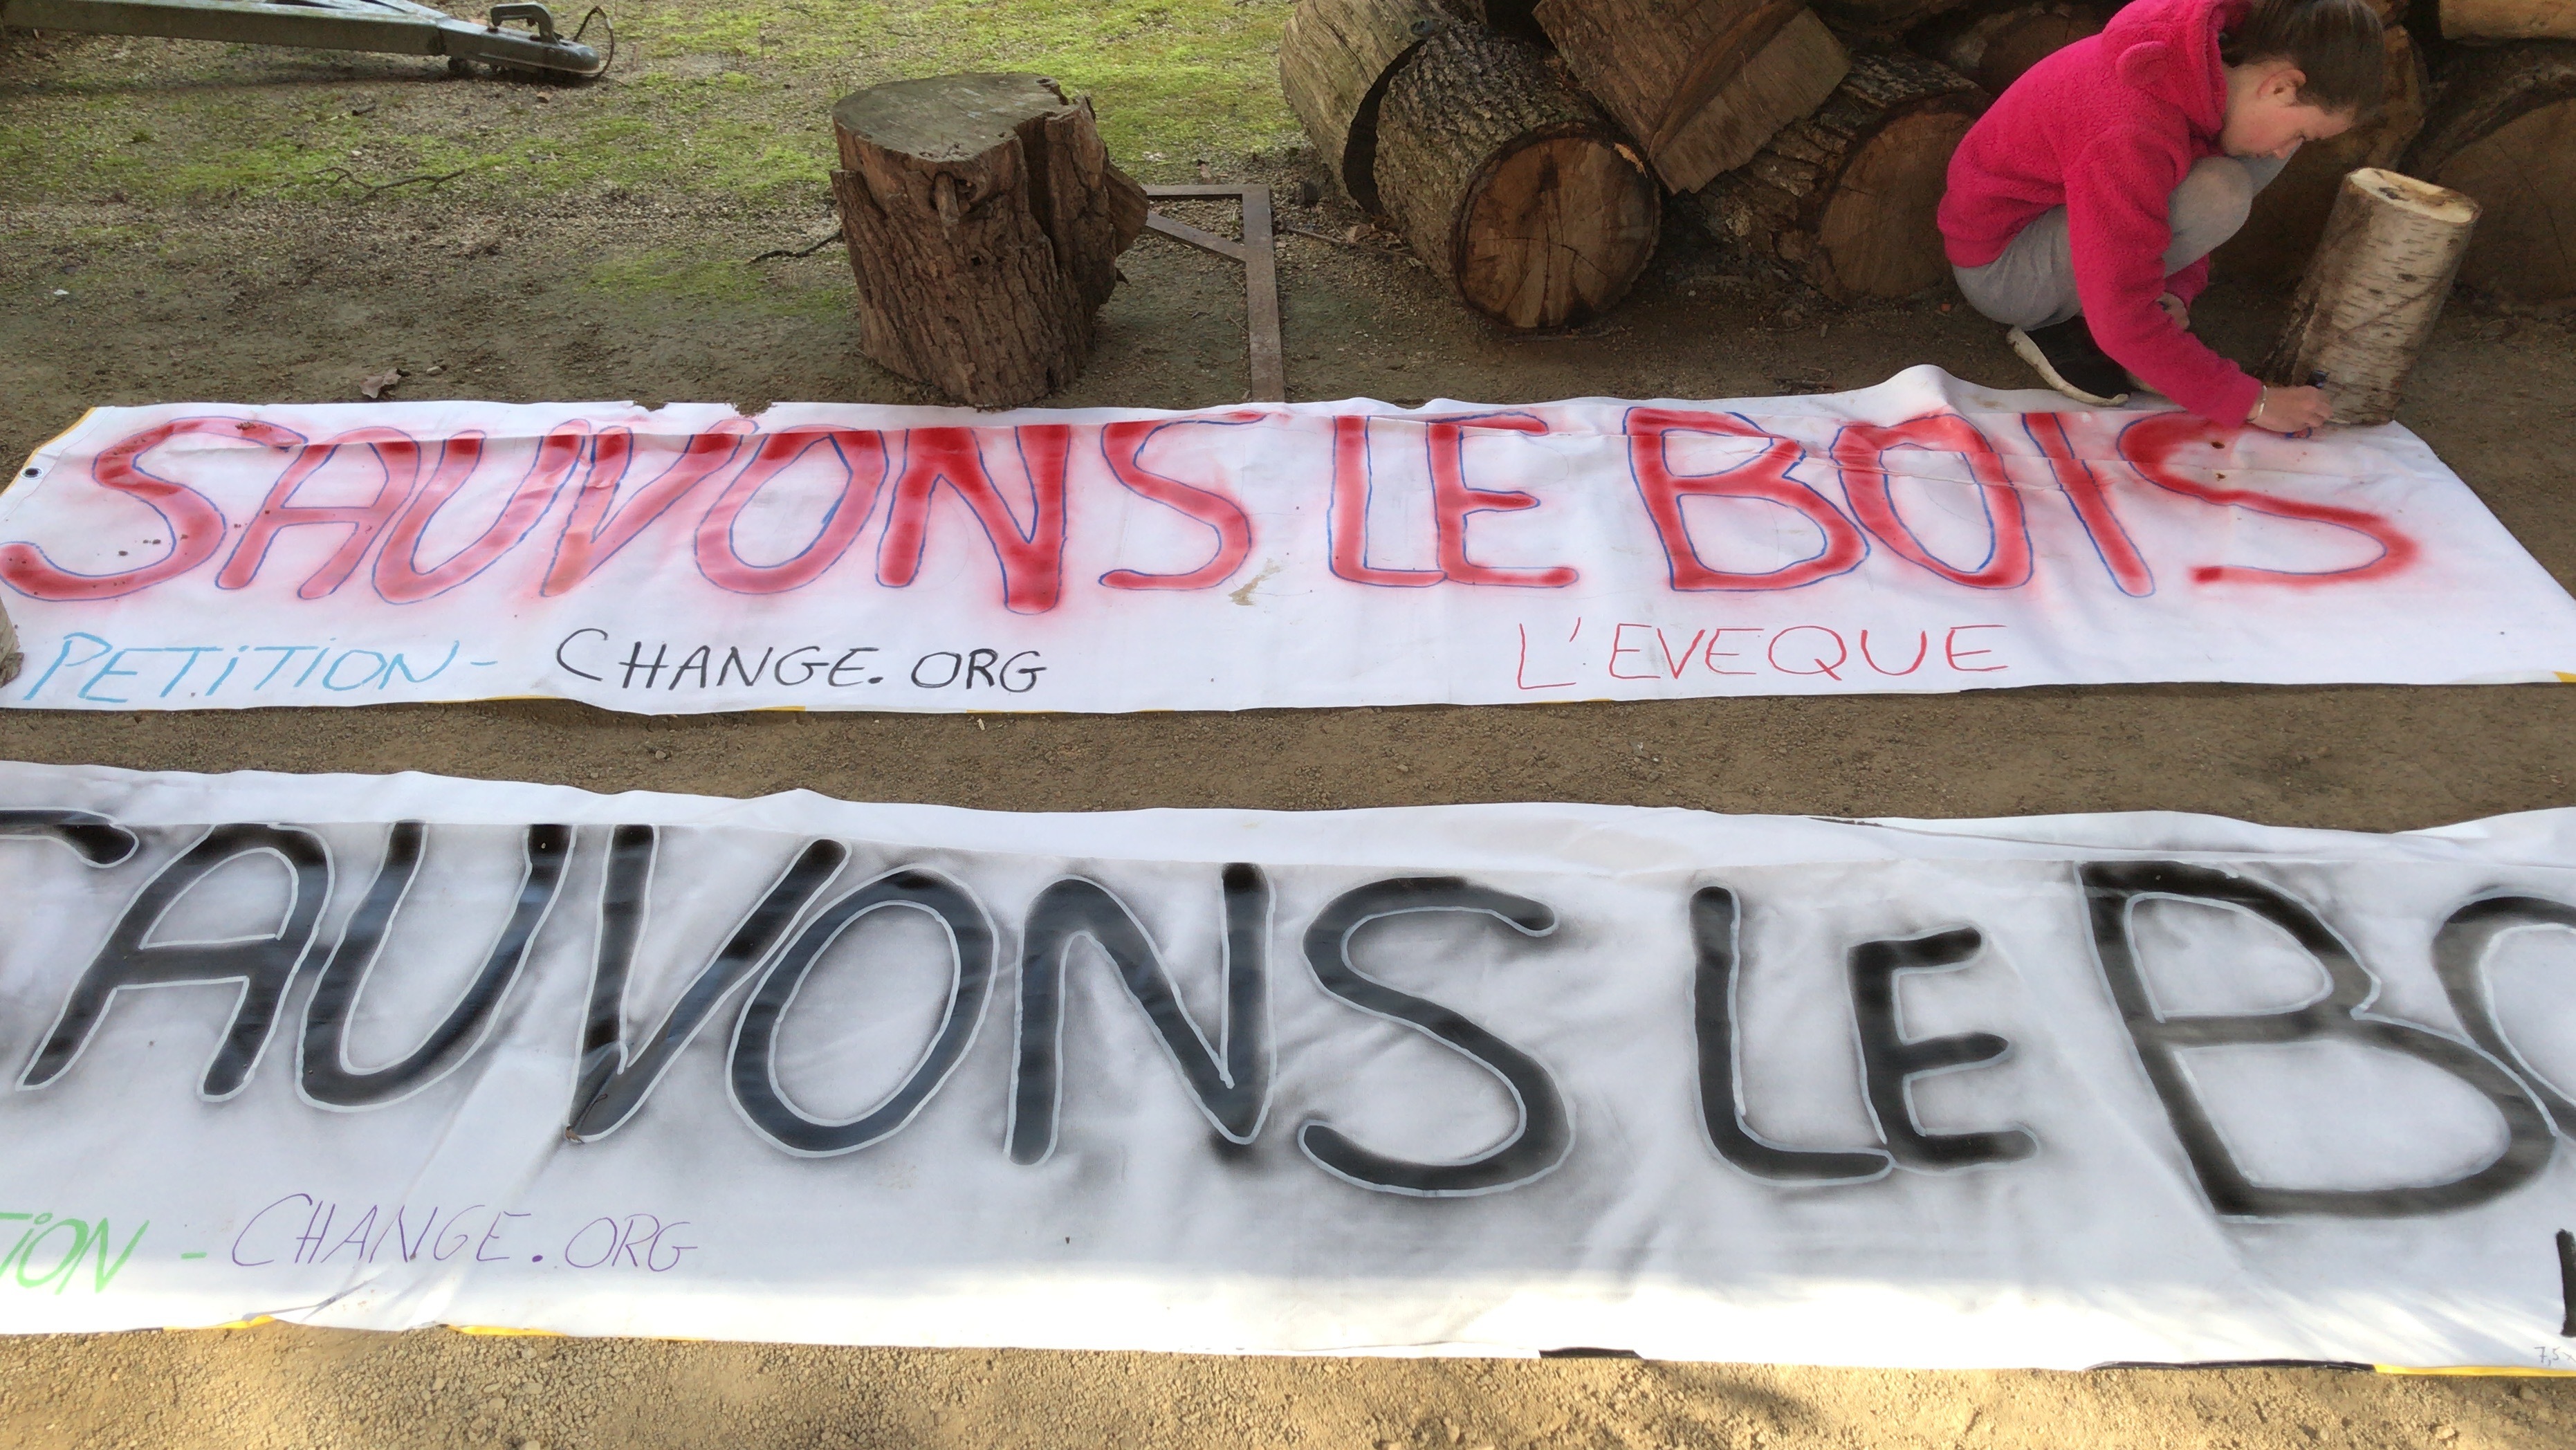 SAUVONS LE BOIS
PETITION - CHANGE.ORG L'EVEQUE
SAUVONS LE BO
TION - CHANGE.ORG
7,5